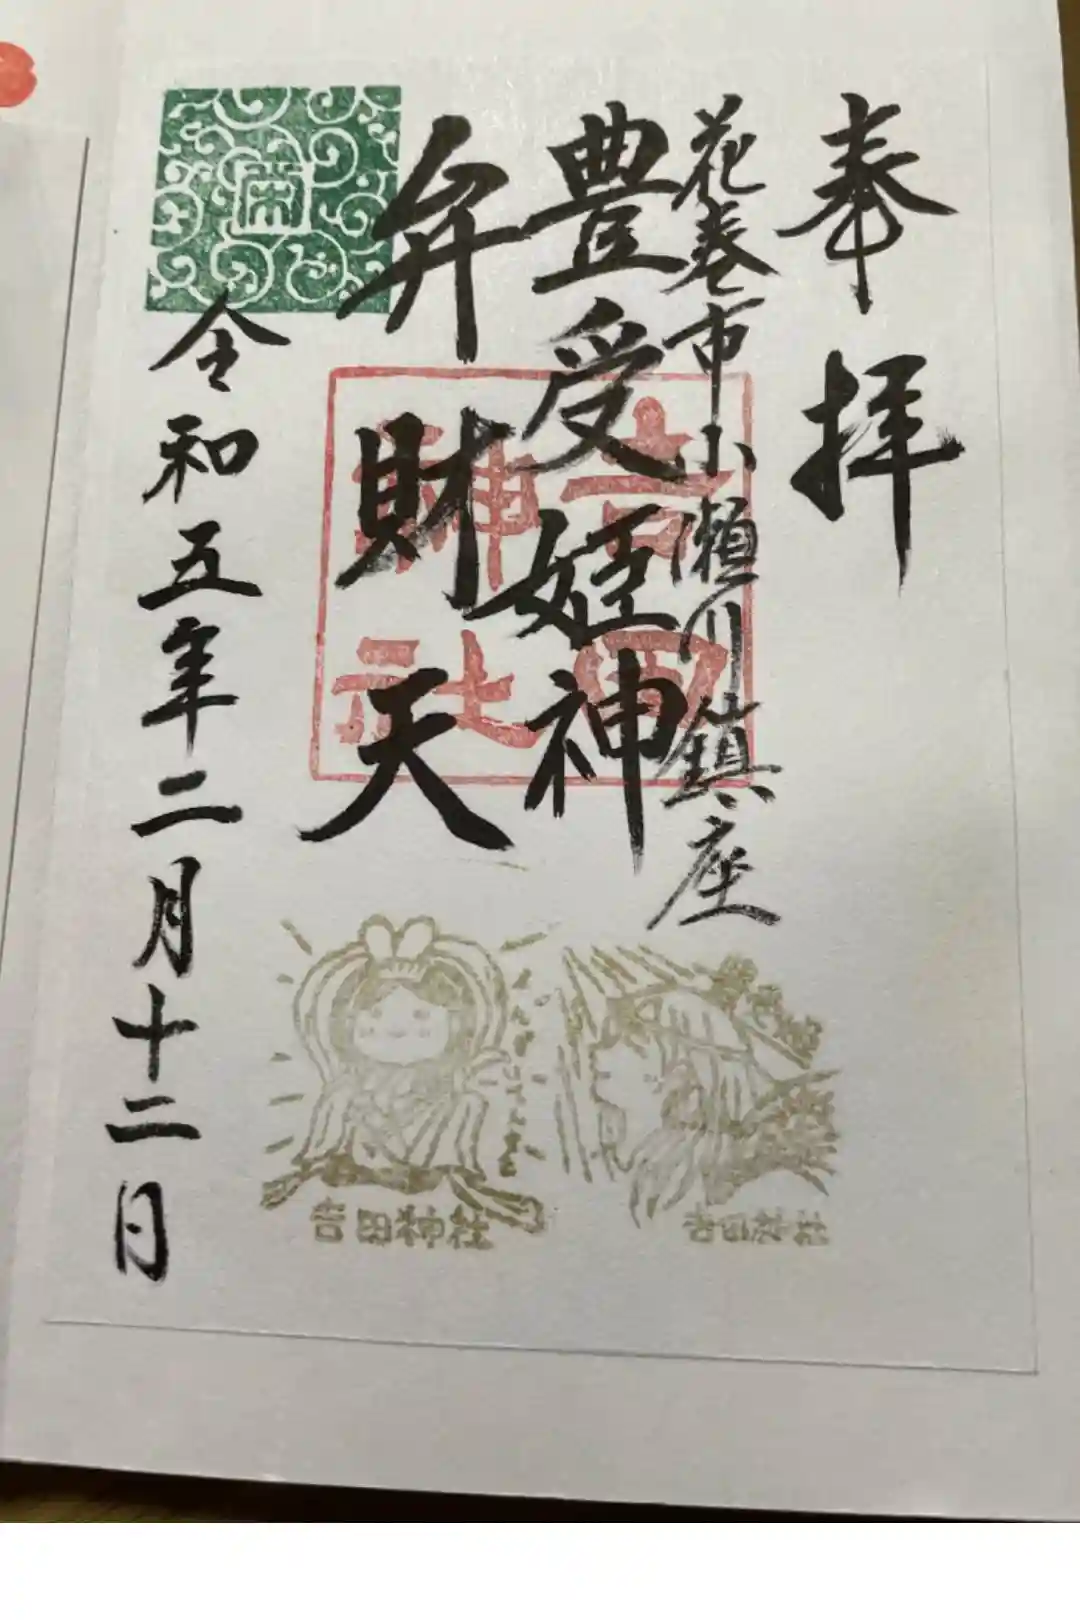 奉拝
花巻市小瀬川鎮座
豊受姫神
弁財天
令和五年二月十二日
吉田
神社
吉田神社
吉田神社